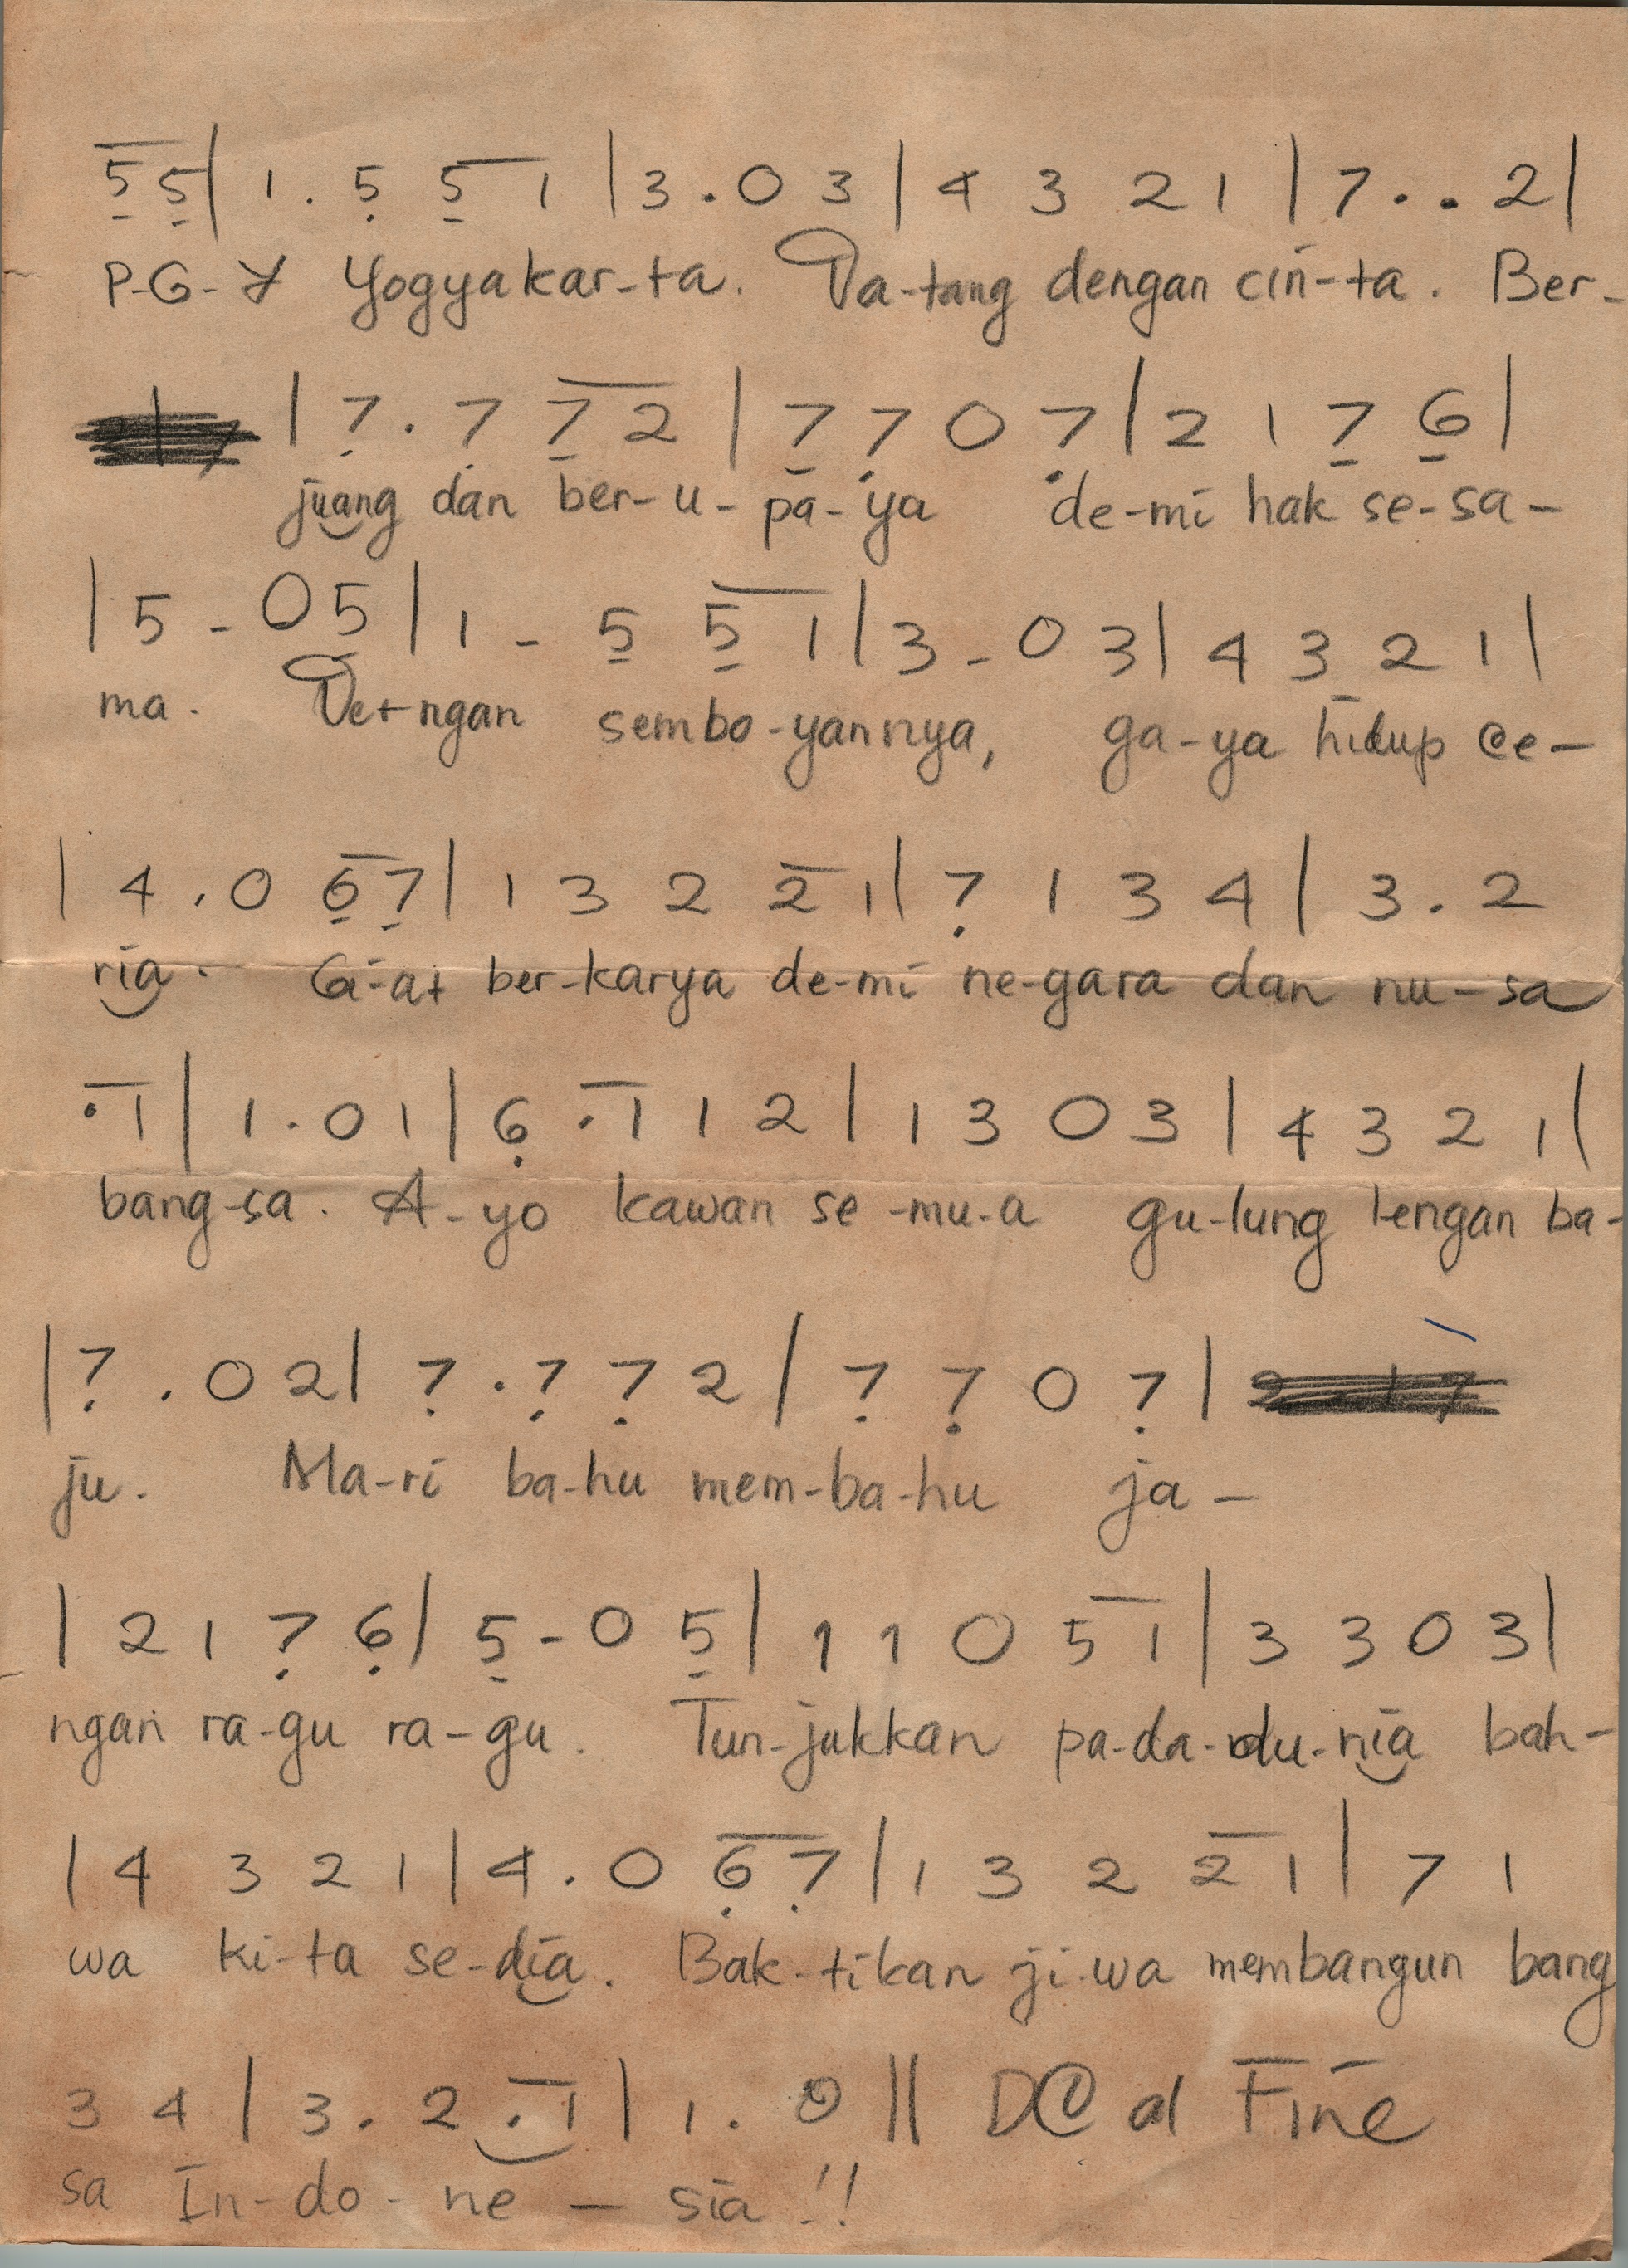 5 5 | 1 . 5 5 1 | 3 . 0 3 | 4 3 2 1 | 7 . . 2 |
P-G-Y Yogyakar-ta. Da-tang dengan cin-ta. Ber-
| 7 . 7 7 2 | 7 7 0 7 | 2 1 7 6 |
juang dan ber-u-pa-ya de-mi hak se-sa-
| 5 - 0 5 | 1 - 5 5 1 | 3 - 0 3 | 4 3 2 1 |
ma. De-ngan sembo-yannya, ga-ya hidup ce-
| 4 . 0 6 7 | 1 3 2 2 1 | 7 1 3 4 | 3 . 2
ria. Gi-at ber-karya de-mi ne-gara dan nu-sa
. 1 | 1 . 0 1 | 6 . 1 1 2 | 1 3 0 3 | 4 3 2 1 |
bang-sa. A-yo kawan se-mu-a gu-lung lengan ba-
| 7 . 0 2 | 7 . 7 7 2 | 7 7 0 7 |
ju. Ma-ri ba-hu mem-ba-hu ja-
| 2 1 7 6 | 5 - 0 5 | 1 1 0 5 1 | 3 3 0 3 |
ngan ra-gu ra-gu. Tun-jukkan pa-da-du-nia bah-
| 4 3 2 1 | 4 . 0 6 7 | 1 3 2 2 1 | 7 1
wa ki-ta se-dia. Bak-tikan ji-wa membangun bang
3 4 | 3 . 2 . 1 | 1 . 0 || DC al Fine
sa In-do-ne-sia!!